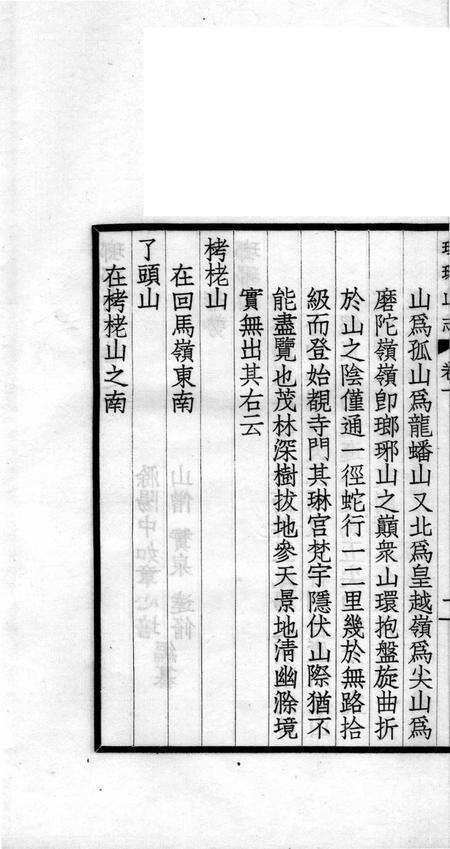 山爲孤山爲龍蟠山又北爲皇越嶺爲尖山爲
磨陀嶺嶺卽瑯琊山之巔衆山環抱盤旋曲折
於山之陰僅通一徑蛇行一二里幾於無路拾
級而登始覩寺門其琳宫梵宇隱伏山際猶不
能盡覽也茂林深樹拔地參天景地淸幽滁境
實無出其右云
栲栳山
在回馬嶺東南
了頭山
在栲栳山之南